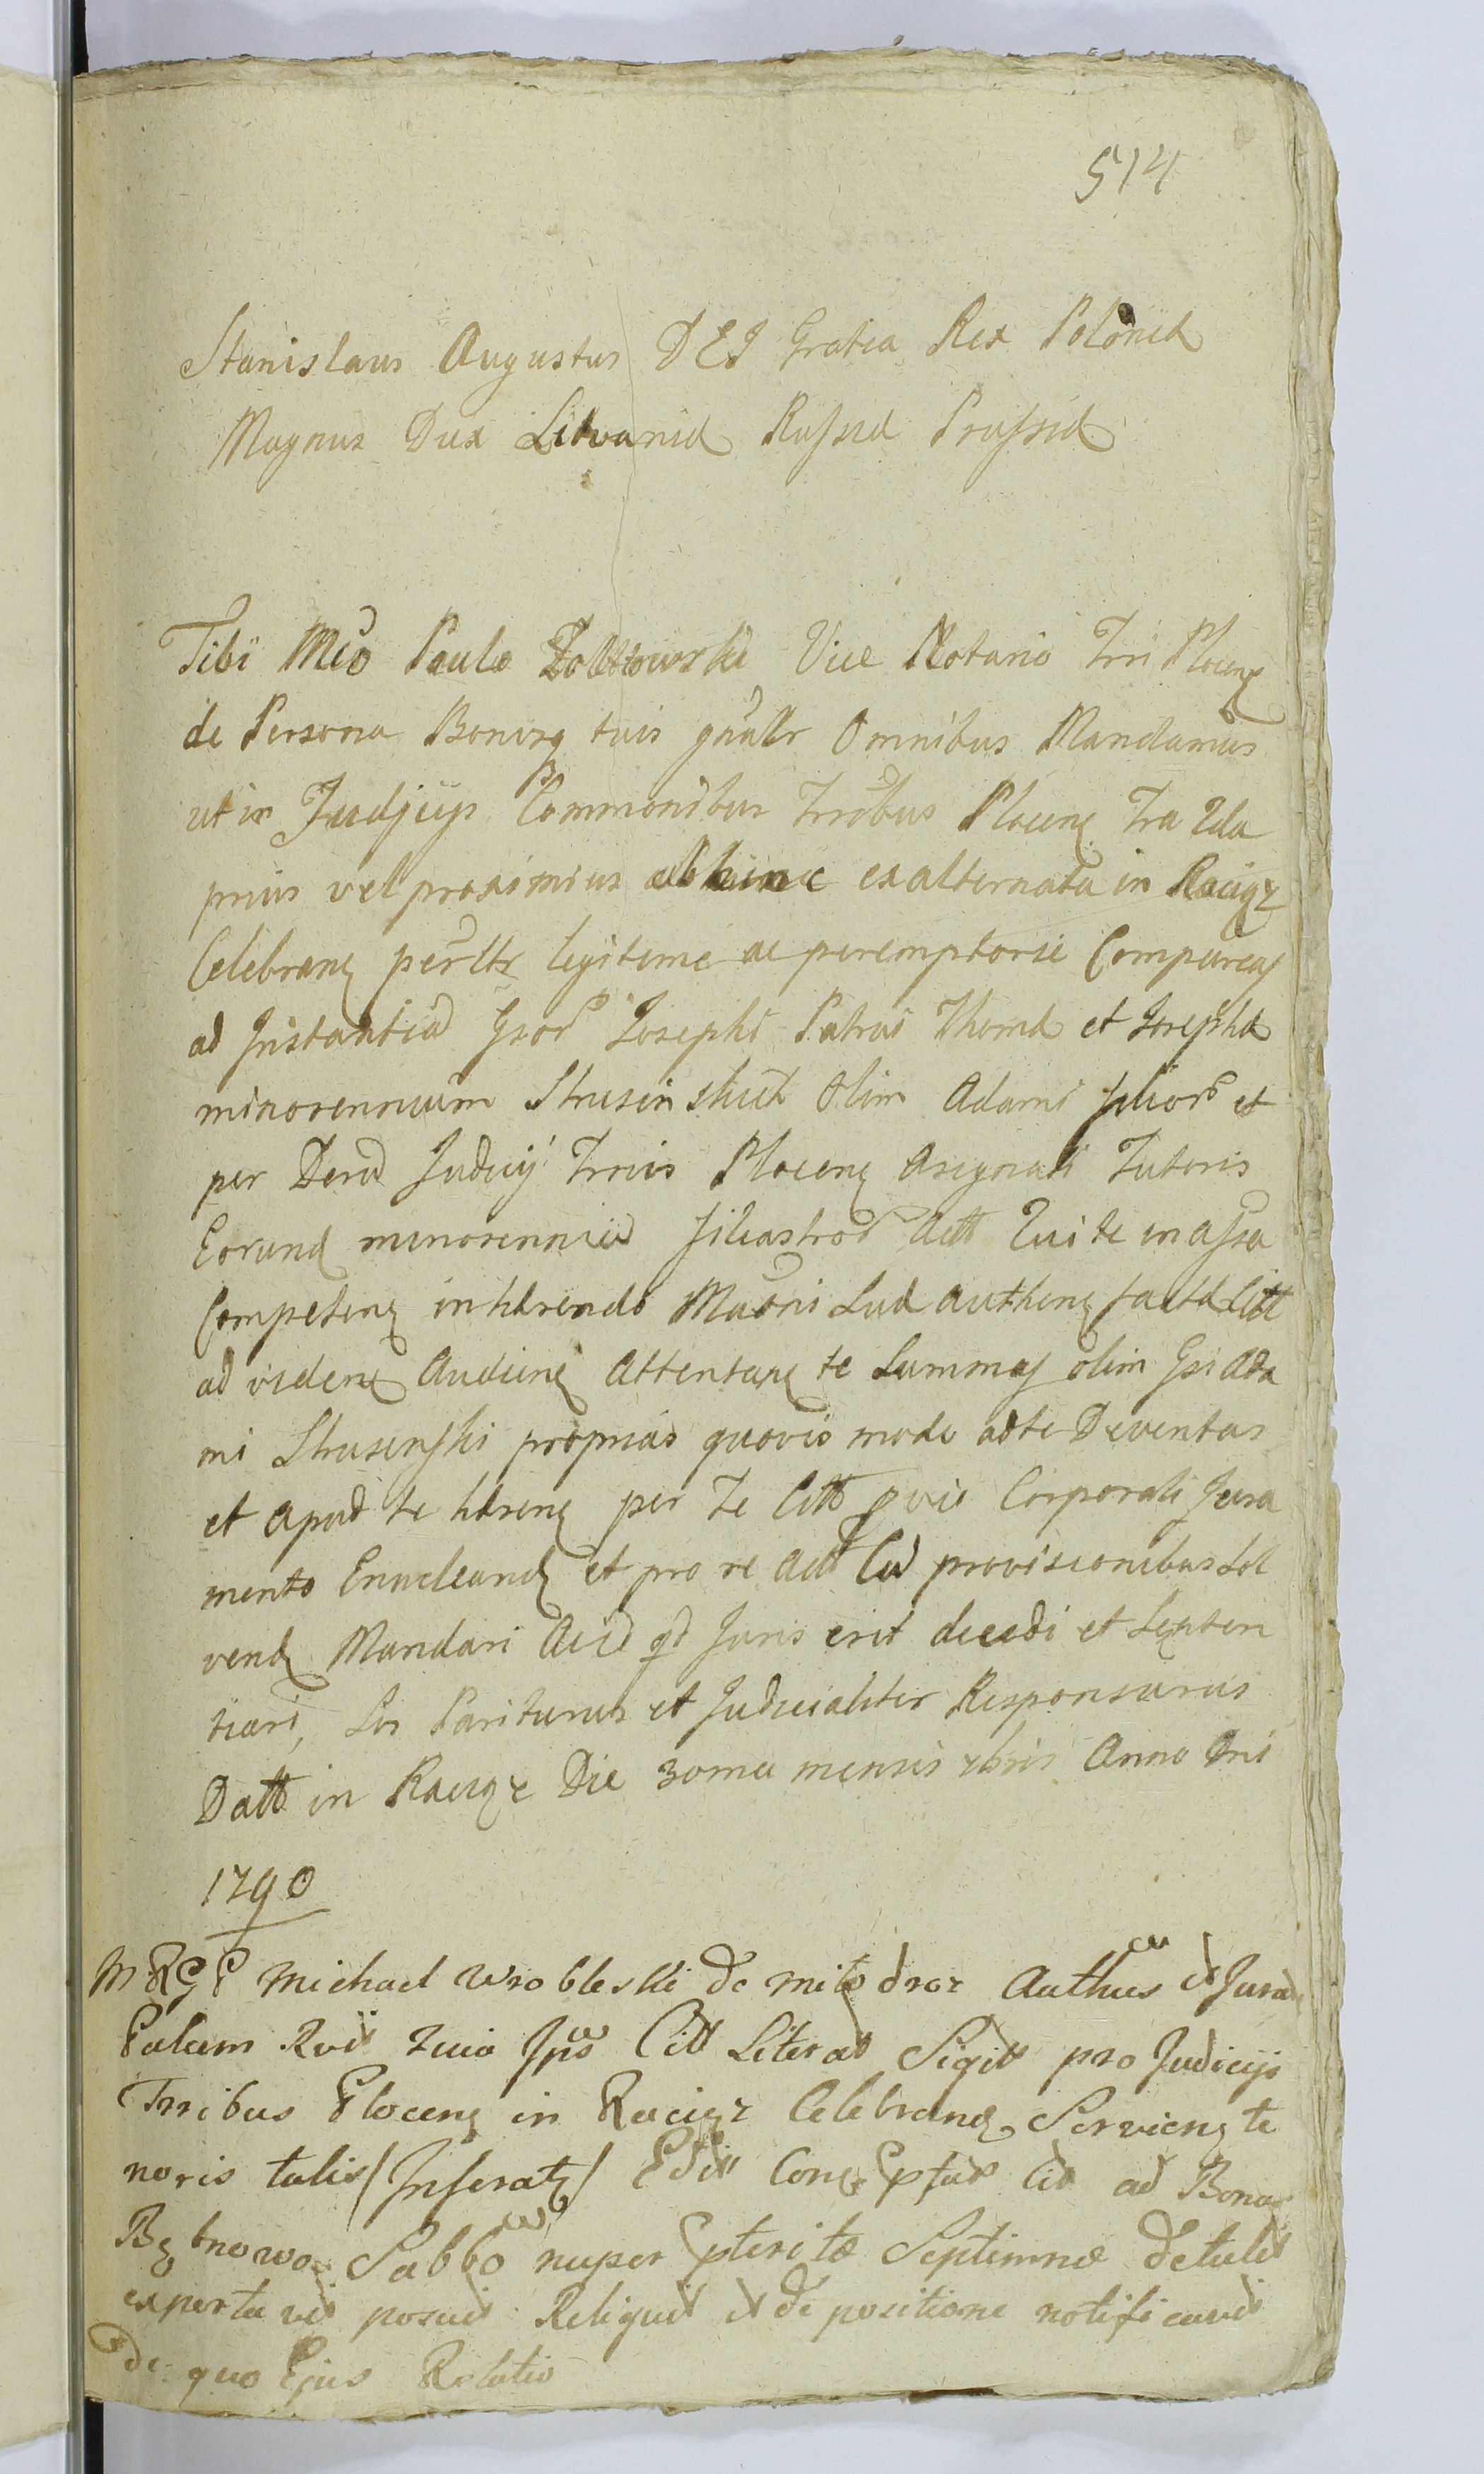 514
Stanislaus Augustus DEJ Gratia Rex Poloniæ
Magnus Dux Litvaniæ Russiæ Prussiæ
Tibi Mco Paulo Zołtowski Vice Notario Trri Plocen
de Persona Bonisq tuis gnalr Omnibus Mandamus
ut in Judicijs Commonibus Trribus Plocen Tra
prius vel proximius abhinc ex alternata in Raciąz
Celebran perltr legitime ac peremptorie Compareas
ad Jnstantiã Gsor Josephi Patrui Thomæ et Josephæ
minorennium Strusinskich Olim Adami filior et
per Decrã Judicij Trris Plocen Asignati Tutoris
Eorund minorenniũ filiastror Actt Qui te in assa
Competen inhærendo Muõni Suæ authen factæ Citt
ad viden Audien Attentare te Summas olim Gsi Ada
mi Strusenski proprias quovis modo ad te Deventas
et apud te hæren per Te Citt pvio Corporali Jura
mento Enucleand et pro re Actt Cũ provisionibus Sol
vend Mandari Acid qd Juris erit decedi et Senten
tiari, Sis Pariturus et Judicialiter Responsurus
Datt in Raciąz Die 30ma mensis 7bris Anno Dni
1790
MRGP Michael Wrobleski de mito droz Authus et Jurat
Palam Rvit quia Jpse Citt Literas Sigitt pro Judicijs
Trribus Plocen in Raciąz Celebran Servien te
noris talis /Inserat/ Edit Conq ad Bona
Sabbo nuper pterito Septimnæ detulit
posuit Reliquit et de positione notificavit
de quo Ejus Relatio